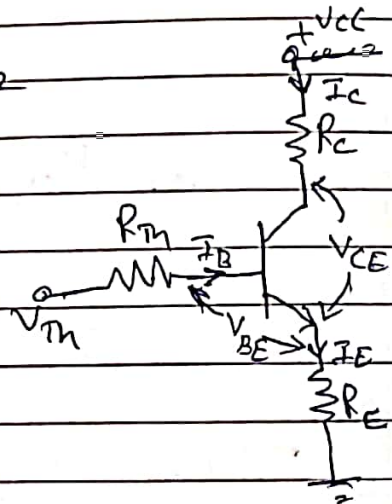 +VCC
IC
RC
RTh
IB
VCE
VTh
VBE
IE
RE